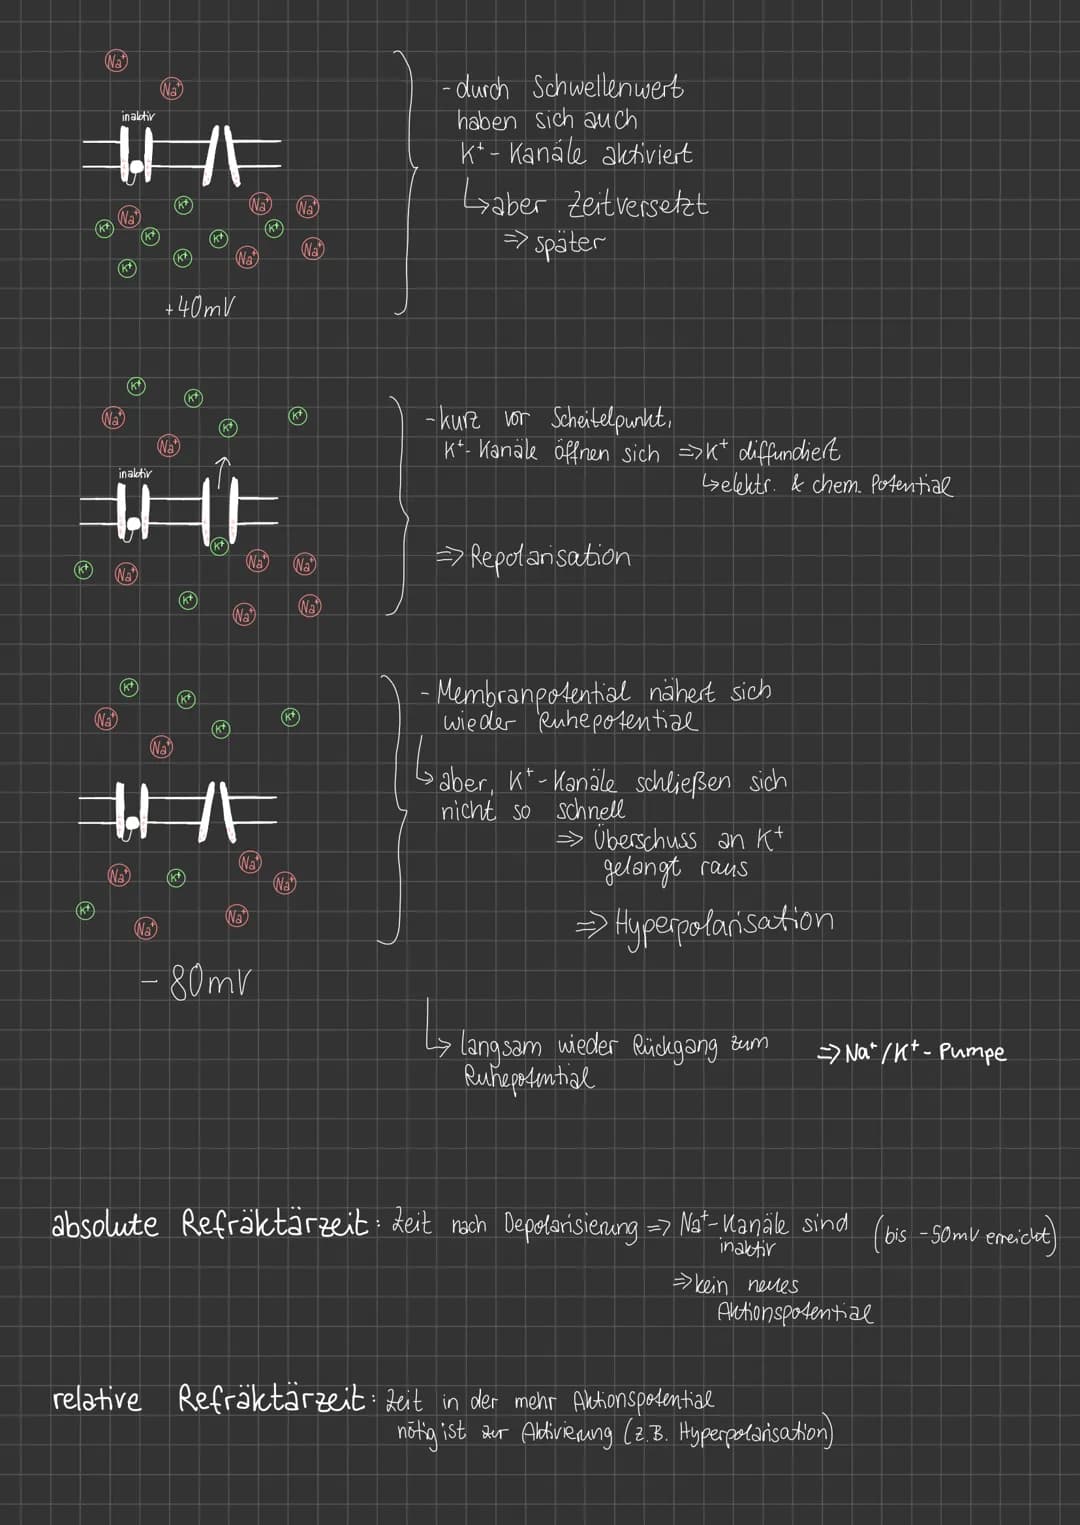 Na⁺
Na⁺
inaktiv
K⁺
Na⁺
Na⁺
Na⁺
K⁺
K⁺
K⁺
K⁺
Na⁺
K⁺
Na⁺
K⁺
+40mV
- durch Schwellenwert
haben sich auch
K⁺ - Kanäle aktiviert
↳ aber zeitversetzt
⇒ später
K⁺
K⁺
Na⁺
K⁺
K⁺
Na⁺
inaktiv
K⁺
Na⁺
Na⁺
K⁺
Na⁺
K⁺
Na⁺
Na⁺
- kurz vor Scheitelpunkt,
K⁺- Kanäle öffnen sich ⇒ K⁺ diffundiert
↳ elektr. & chem. Potential
⇒ Repolarisation
K⁺
K⁺
Na⁺
K⁺
K⁺
Na⁺
Na⁺
Na⁺
K⁺
Na⁺
K⁺
Na⁺
Na⁺
- 80mV
- Membranpotential nähert sich
wieder Ruhepotential
↳ aber, K⁺ - Kanäle schließen sich
nicht so schnell
⇒ Überschuss an K⁺
gelangt raus
⇒ Hyperpolarisation
↳ langsam wieder Rückgang zum ⇒ Na⁺/K⁺ - Pumpe
Ruhepotential
absolute Refräktärzeit: Zeit nach Depolarisierung ⇒ Na⁺-Kanäle sind (bis -50mV erreicht)
inaktiv
⇒ kein neues
Aktionspotential
relative Refräktärzeit: Zeit in der mehr Aktionspotential
nötig ist zur Aktivierung (z.B. Hyperpolarisation)